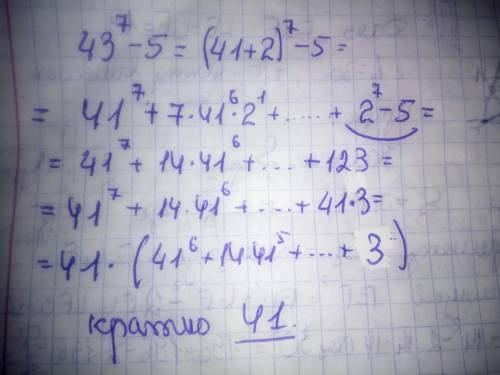 43⁷-5 = (41+2)⁷-5=
= 41⁷+7·41⁶·2¹+.....+2⁷-5=
= 41⁷+14·41⁶+...+123=
=41⁷+14·41⁶+...+41·3=
=41·(41⁶+14·41⁵+...+3)
кратно 41.